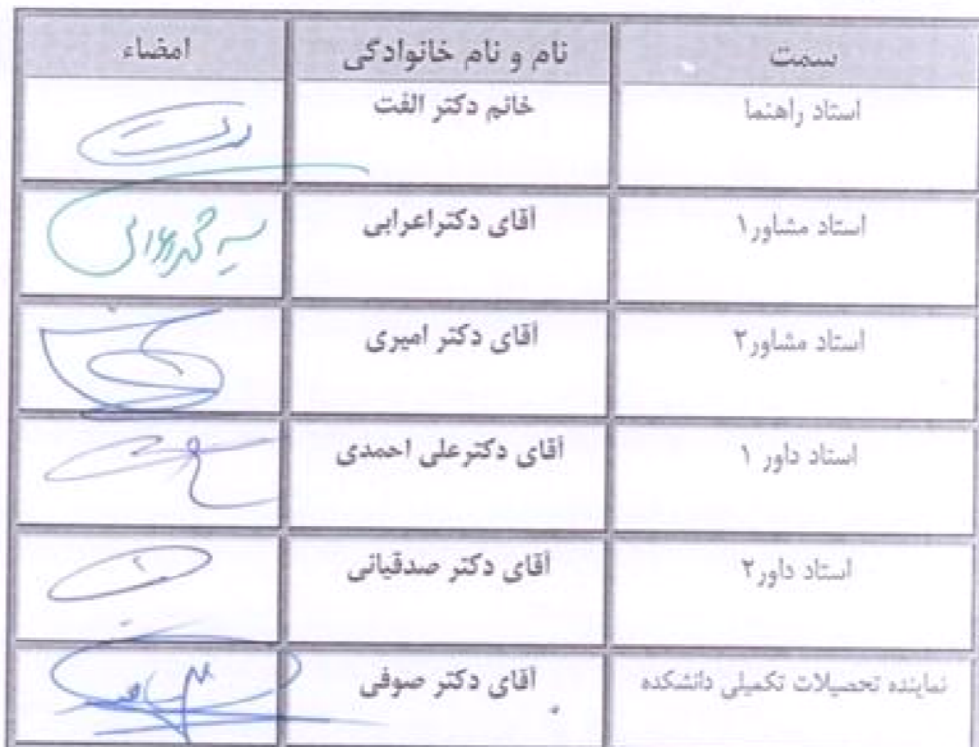 سمت نام و نام خانوادگی امضاء
استاد راهنما خانم دکتر الفت
استاد مشاور۱ آقای دکتراعرابی
استاد مشاور۲ آقای دکتر امیری
استاد داور ۱ آقای دکترعلی احمدی
استاد داور۲ آقای دکتر صدقیانی
نماینده تحصیلات تکمیلی دانشکده آقای دکتر صوفی